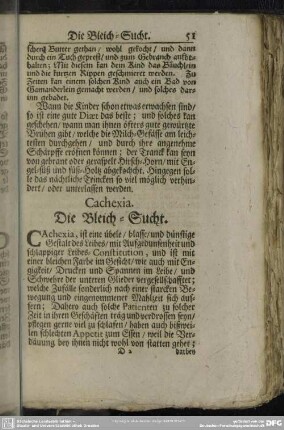 Die Bleich-Sucht. 51
schen Butter gethan / wohl gekocht / und dann
durch ein Tuch gepreßt / und zum Gebrauch auffbe-
halten; Mit diesem kan dem Kind das Bäuchlein
und die kurtzen Rippen geschmieret werden. Zu
Zeiten kan einem solchen Kind auch ein Bad von
Gamanderlein gemacht werden / und solches dar-
inn gebadet.
Wann die Kinder schon etwas erwachsen sind /
so ist eine gute Diæt das beste; und solches kan
geschehen / wann man ihnen öfters gute gewürtzte
Brühen gibt / welche die Milch-Gefässe am leich-
testen durchgehen / und durch ihre angenehme
Schärpffe eröfnen können; der Tranck kan seyn
von gebrant oder geraspelt Hirsch-Horn / mit En-
gelsüß und süß-Holtz abgekochet. Hingegen sol-
le das nächtliche Trincken so viel möglich verhin-
dert / oder unterlassen werden.
Cachexia.
Die Bleich-Sucht.
CAchexia, ist eine übele / blasse / und dünstige
Gestalt des Leibes / mit Auffgedunsenheit und
schlappiger Leibes-Constitution, und ist mit
einer bleichen Farbe im Gesicht / wie auch mit En-
gigkeit / Drucken und Spannen im Leibe / und
Schwehre der untern Glieder vergesellschafftet;
welche Zufälle sonderlich nach einer starcken Be-
wegung und eingenommener Mahlzeit sich äus-
sern; Dahero auch solche Patienten zu solcher
Zeit in ihren Geschäfften träg und verdrossen seyn /
pflegen gerne viel zu schlafen / haben auch bißwei-
len schlechten Appetit zum Essen / weil die Ver-
däuung bey ihnen nicht wohl von statten gehet;
D 2 darbey